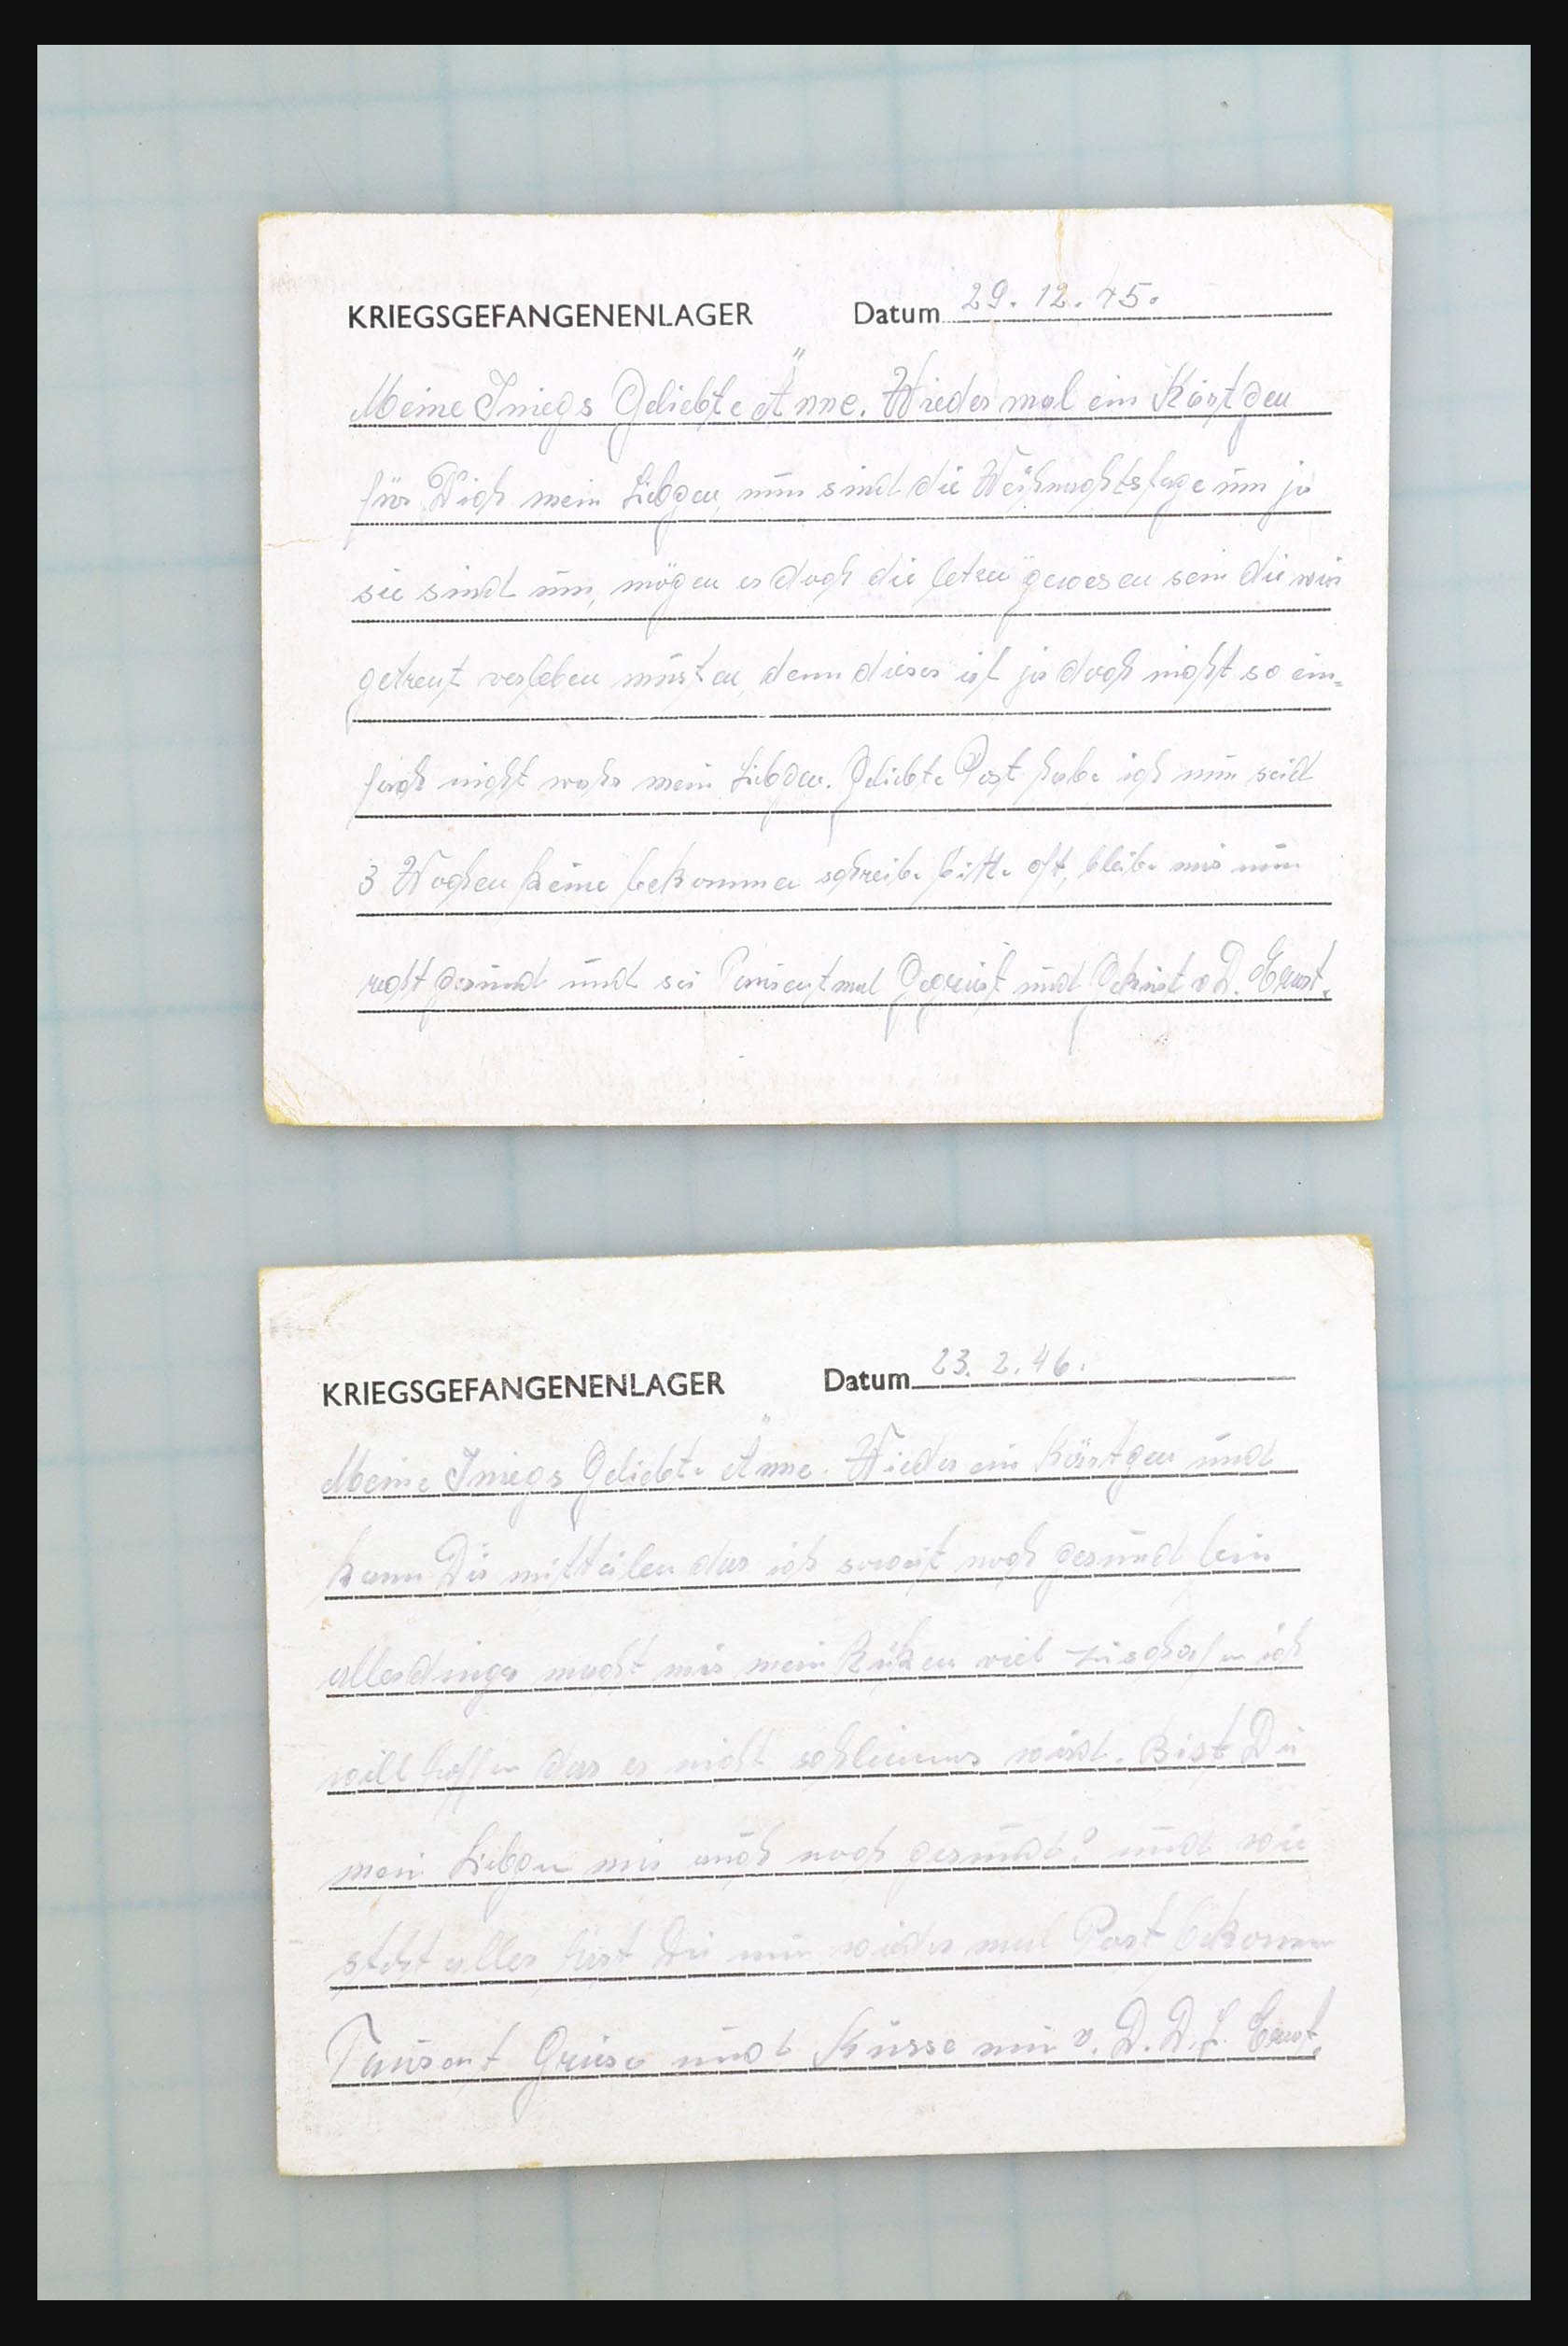 KRIEGSGEFANGENENLAGER Datum 29. 12. 45.
Meine Iniegs Geliebte Änne. Wieder mal ein Kärtgen
für Dich mein Libgen, nun sind die Weihnachtstage um ja
sie sind um, mögen es doch die letzen gewesen sein die wir
getreut verleben musten, denn dieses ist ja doch nicht so ein-
fach nicht wahr mein Libgen. Geliebte Post habe ich nun seid
3 Wochen keine bekommen schreibe bitte oft, bleibe mir nun
recht gesund und sei Tausentmal Gegrüst und Geküst v. D. Ernst.
KRIEGSGEFANGENENLAGER Datum 23. 2. 46.
Meine Iniegs Geliebte Änne. Wieder ein Kärtgen und
kann Dir mitteilen das ich soweit noch gesund bin
allerdings macht mir mein Rüken viel zu schafen ich
will hoffen das es nicht schlimmer wird. Bist Du
mein Libgen mir auch noch gesund? und wie
steht alles hast Du nun wieder mal Post bekommen
Tausent Grüse und Küsse nur v. D. D. L. Ernst.